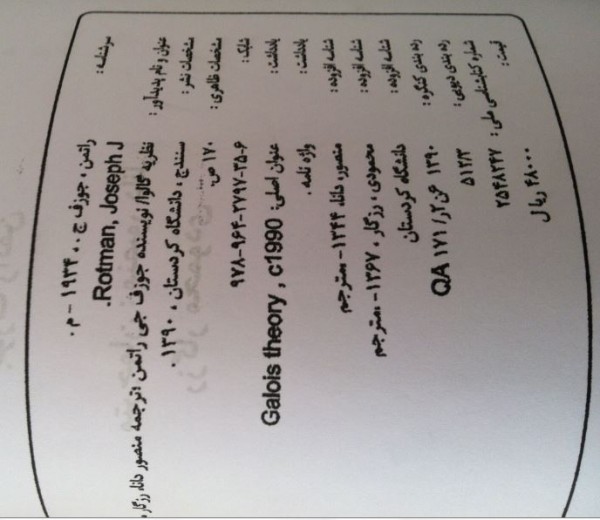 سرشناسه : راتمن ، جوزف ج . ، ۱۹۳۴ - م .
Rotman, Joseph J.
عنوان و نام پدیدآور : نظریه گالوا/ نویسنده جوزف جی راتمن ؛ترجمه منصور دانا، رزگار
مشخصات نشر : سنندج ، دانشگاه کردستان ، ۱۳۹۰ .
مشخصات ظاهری : ۱۷۰ ص.
شابک : ۹۷۸-۹۶۴-۲۷۹۷-۳۵-۶
یادداشت : عنوان اصلی: Galois theory , c1990
یادداشت : واژه نامه .
شناسه افزوده : منصور، دانا، ۱۳۴۴- ،مترجم
شناسه افزوده : محمودی ، رزگار ، ۱۳۶۷- ،مترجم
شناسه افزوده : دانشگاه کردستان
رده بندی کنگره : ۱۳۹۰ QA ۱۷۱
رده بندی دیویی : ۵۱۲/۳
شماره کتابشناسی ملی : ۲۵۴۸۲۴۷
قیمت : ۴۸۰۰۰ ریال